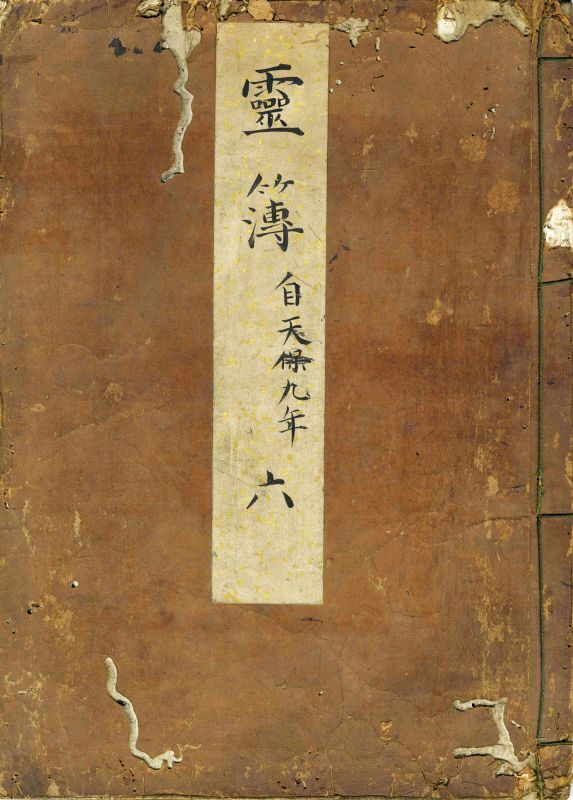 靈簿
自天保九年
六